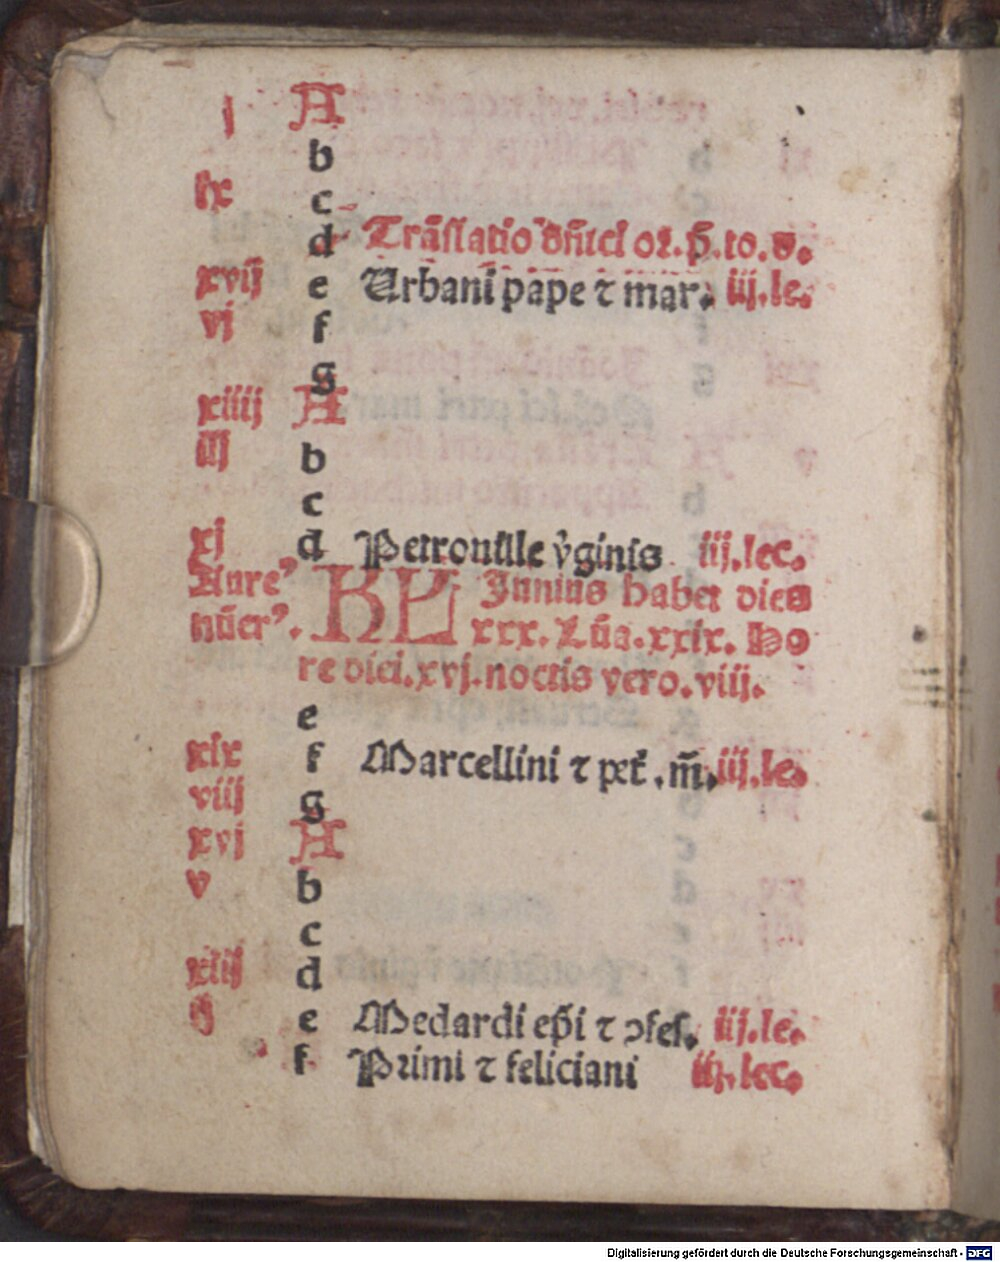 j A
b
ix c
d Trãslatio dñici oꝛ. p̄. to. d.
xvij e Urbani pape ⁊ mar. iij. le.
vj f
g
xiiij A
iij b
c
xj d Petronille v̾ginis iij. lec.
Aure⁹ KL Junius habet dies
nũer⁹. xxx. Lũa. xxix. Ho
re diei. xvj. noctis vero. viij.
e
xix f Marcellini ⁊ pet. m̄. iij. le.
viij g
xvj A
v b
c
xiij d
ij e Medardi ep̄i ⁊ ↄfes. iij. le.
f Primi ⁊ feliciani iij. lec.
Digitalisierung gefördert durch die Deutsche Forschungsgemeinschaft - DFG